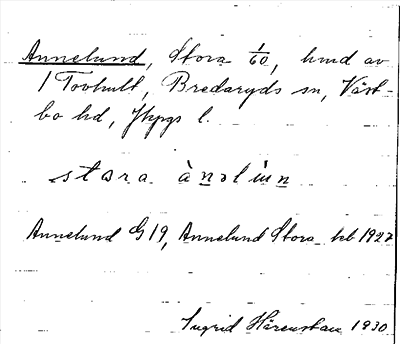 Annelund, Stora 1/60, hmd av
1 Tovhult, Bredaryds sn, Väst-
bo hd, Jkpgs l.
stora ànəlùn
Annelund G 19, Annelund Stora 1927
Ingrid Härenstam 1930